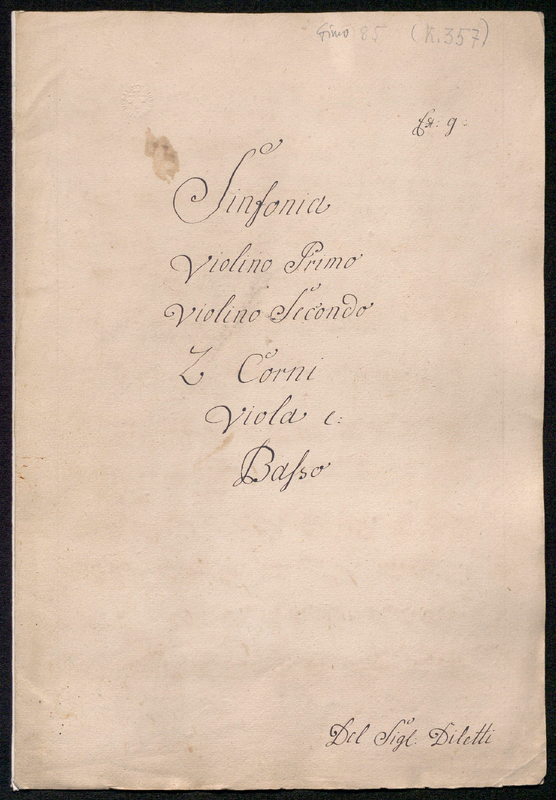 Gimo 85 (K.357)
Ex: 9:
Sinfonia
Violino Primo
Violino Secondo
2 Corni
Viola e:
Basso
Del Sigl: Diletti